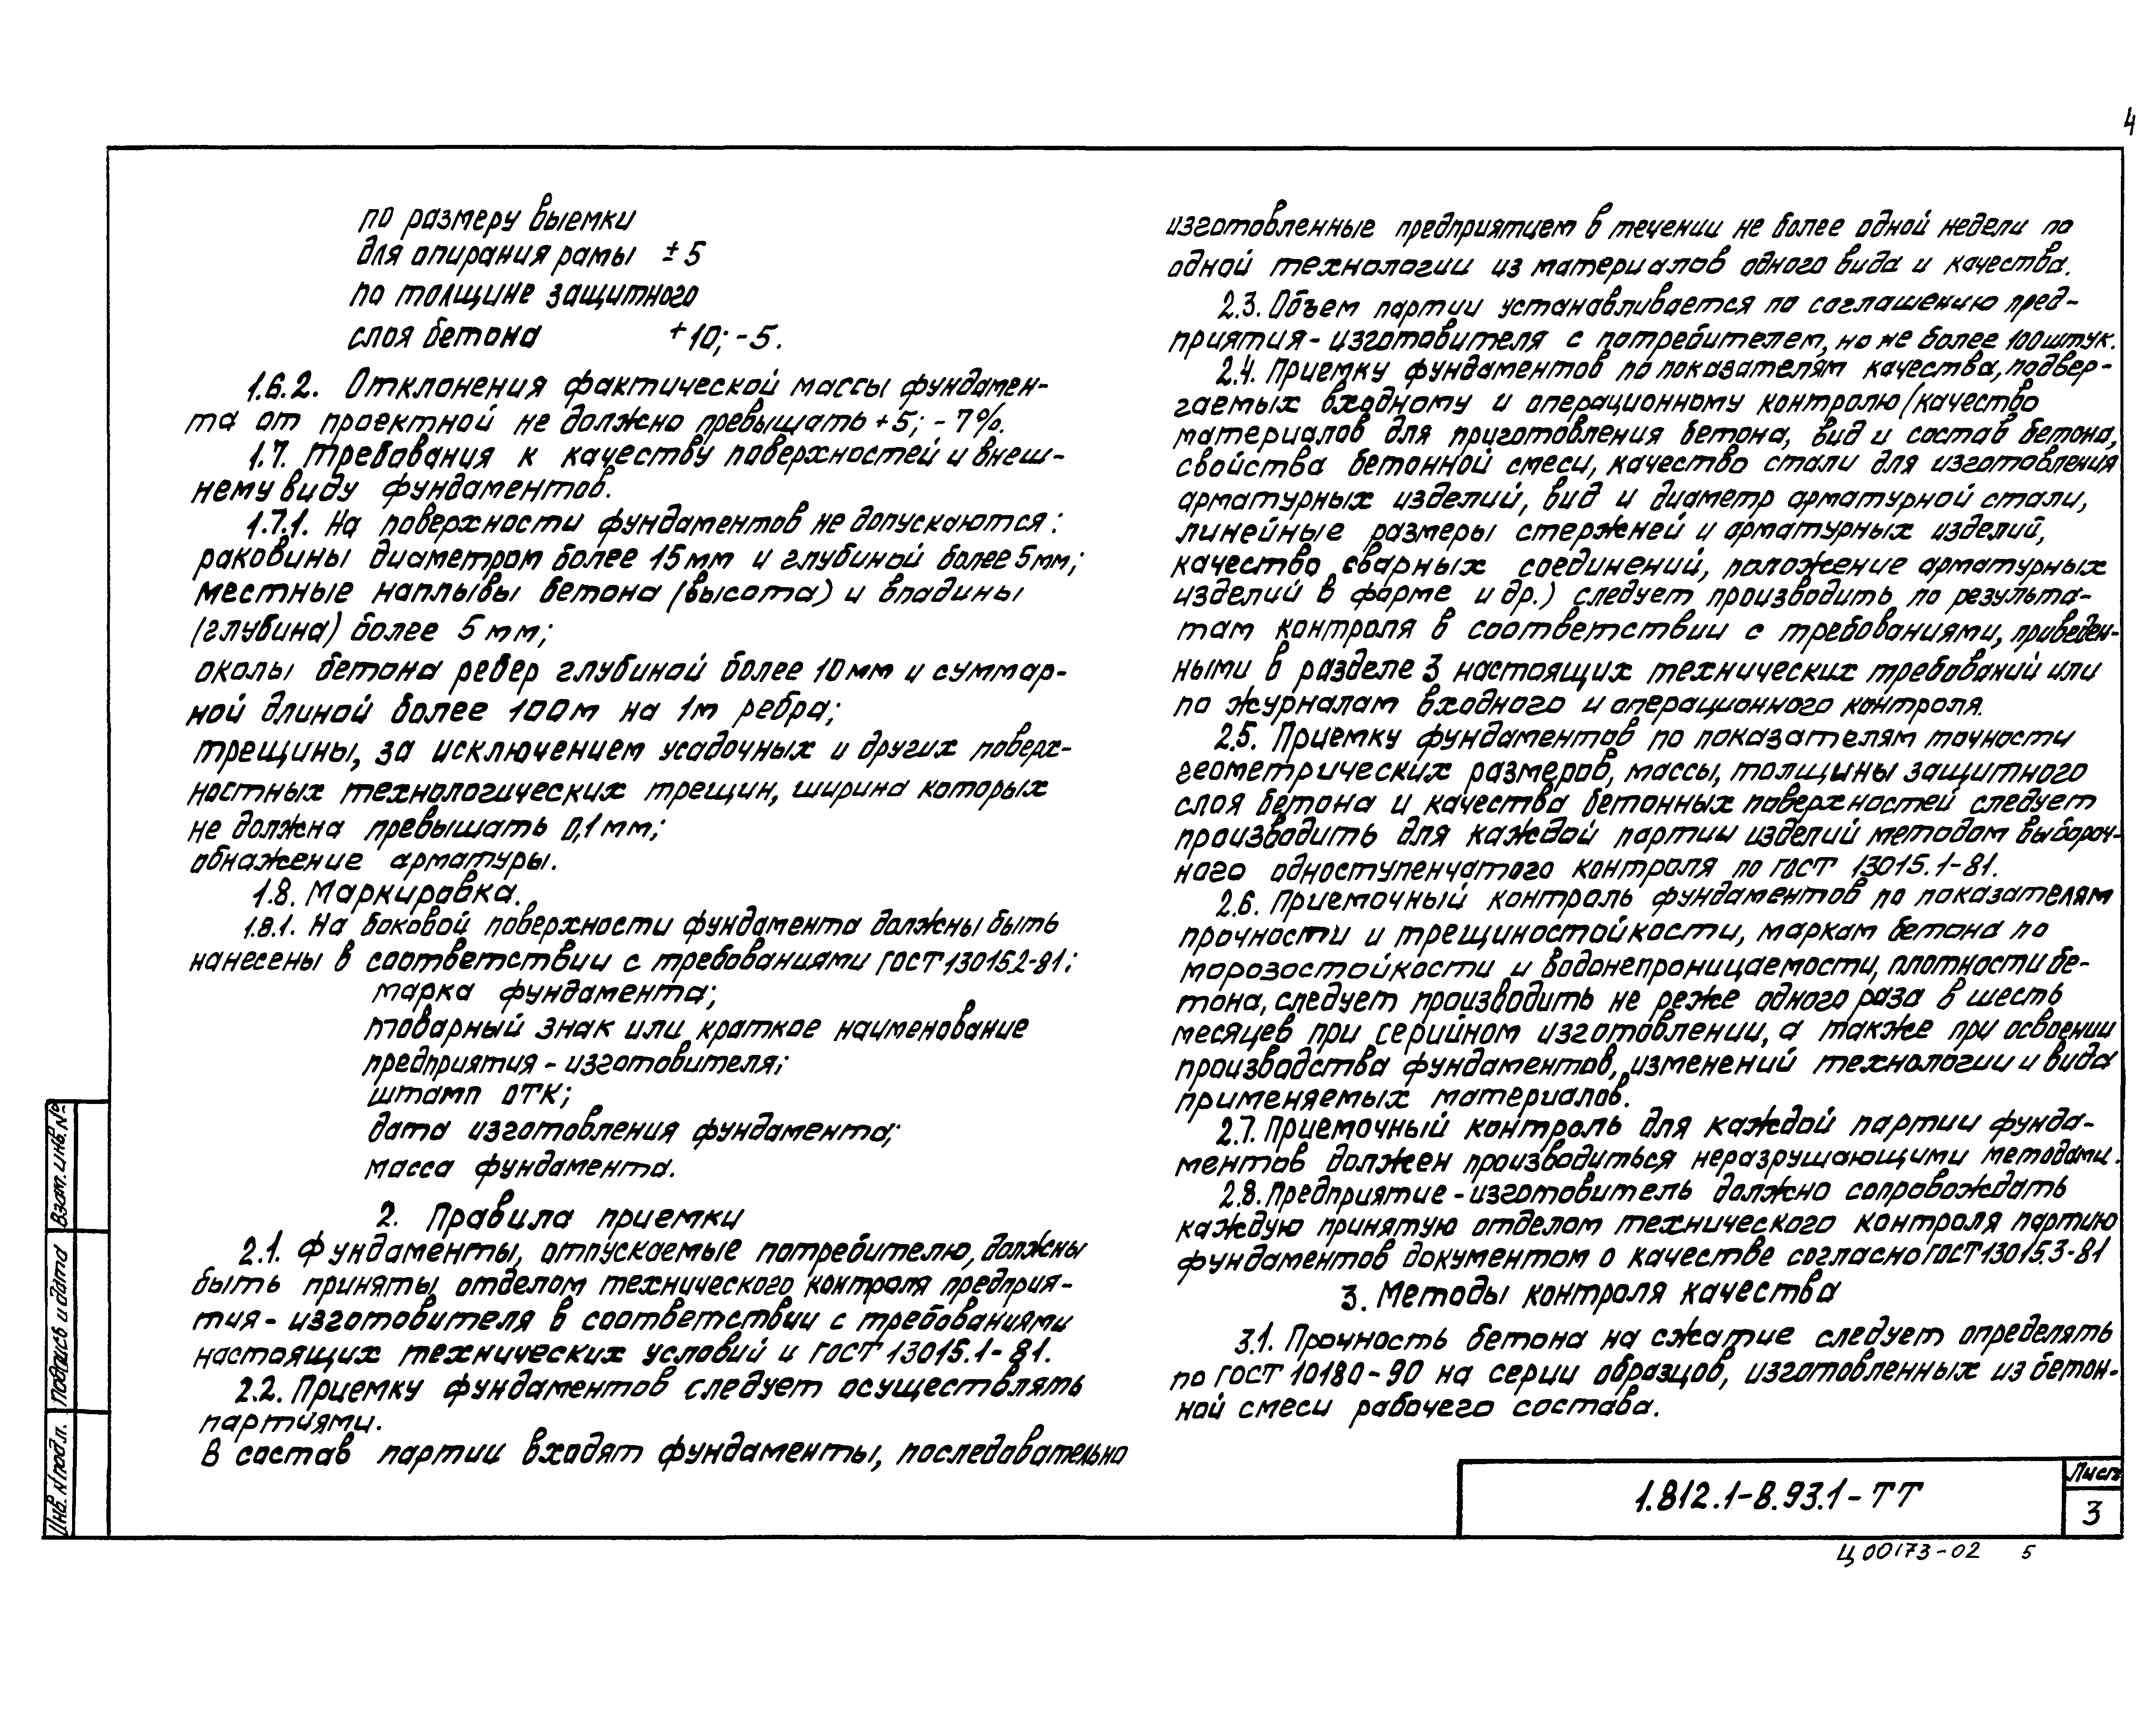 4
по размеру выемки
для опирания рамы ± 5
по толщине защитного
слоя бетона +10; -5.
1.6.2. Отклонения фактической массы фундамен-
та от проектной не должно превышать +5; -7%.
1.7. Требования к качеству поверхностей и внеш-
нему виду фундаментов.
1.7.1. На поверхности фундаментов не допускаются:
раковины диаметром более 15 мм и глубиной более 5мм;
местные наплывы бетона (высота) и впадины
(глубина) более 5 мм;
околы бетона ребер глубиной более 10 мм и суммар-
ной длиной более 100м на 1м ребра;
трещины, за исключением усадочных и других поверх-
ностных технологических трещин, ширина которых
не должна превышать 0,1 мм;
обнажение арматуры.
1.8. Маркировка.
1.8.1. На боковой поверхности фундамента должны быть
нанесены в соответствии с требованиями ГОСТ 13015.2-81:
марка фундамента;
товарный знак или краткое наименование
предприятия - изготовителя;
штамп ОТК;
дата изготовления фундамента;
масса фундамента.
2. Правила приемки
2.1. Фундаменты, отпускаемые потребителю, должны
быть приняты отделом технического контроля предприя-
тия - изготовителя в соответствии с требованиями
настоящих технических условий и ГОСТ 13015.1-81.
2.2. Приемку фундаментов следует осуществлять
партиями.
В состав партии входят фундаменты, последовательно
изготовленные предприятием в течении не более одной недели по
одной технологии из материалов одного вида и качества.
2.3. Объем партии устанавливается по соглашению пред-
приятия - изготовителя с потребителем, но не более 100 штук.
2.4. Приемку фундаментов по показателям качества, подвер-
гаемых входному и операционному контролю (качество
материалов для приготовления бетона, вид и состав бетона,
свойства бетонной смеси, качество стали для изготовления
арматурных изделий, вид и диаметр арматурной стали,
линейные размеры стержней и арматурных изделий,
качество сварных соединений, положение арматурных
изделий в форме и др.) следует производить по результа-
там контроля в соответствии с требованиями, приведен-
ными в разделе 3 настоящих технических требований или
по журналам входного и операционного контроля.
2.5. Приемку фундаментов по показателям точности
геометрических размеров, массы, толщины защитного
слоя бетона и качества бетонных поверхностей следует
производить для каждой партии изделий методом выбороч-
ного одноступенчатого контроля по ГОСТ 13015.1-81.
2.6. Приемочный контроль фундаментов по показателям
прочности и трещиностойкости, маркам бетона по
морозостойкости и водонепроницаемости, плотности бе-
тона, следует производить не реже одного раза в шесть
месяцев при серийном изготовлении, а также при освоении
производства фундаментов, изменений технологии и вида
применяемых материалов.
2.7. Приемочный контроль для каждой партии фунда-
ментов должен производиться неразрушающими методами.
2.8. Предприятие - изготовитель должно сопровождать
каждую принятую отделом технического контроля партию
фундаментов документом о качестве согласно ГОСТ 13015.3-81
3. Методы контроля качества
3.1. Прочность бетона на сжатие следует определять
по ГОСТ 10180-90 на серии образцов, изготовленных из бетон-
ной смеси рабочего состава.
Взам. инв. №
Подпись и дата
Инв. № подл.
1.812.1-8.93.1-ТТ
Лист
3
Ц00173-02 5